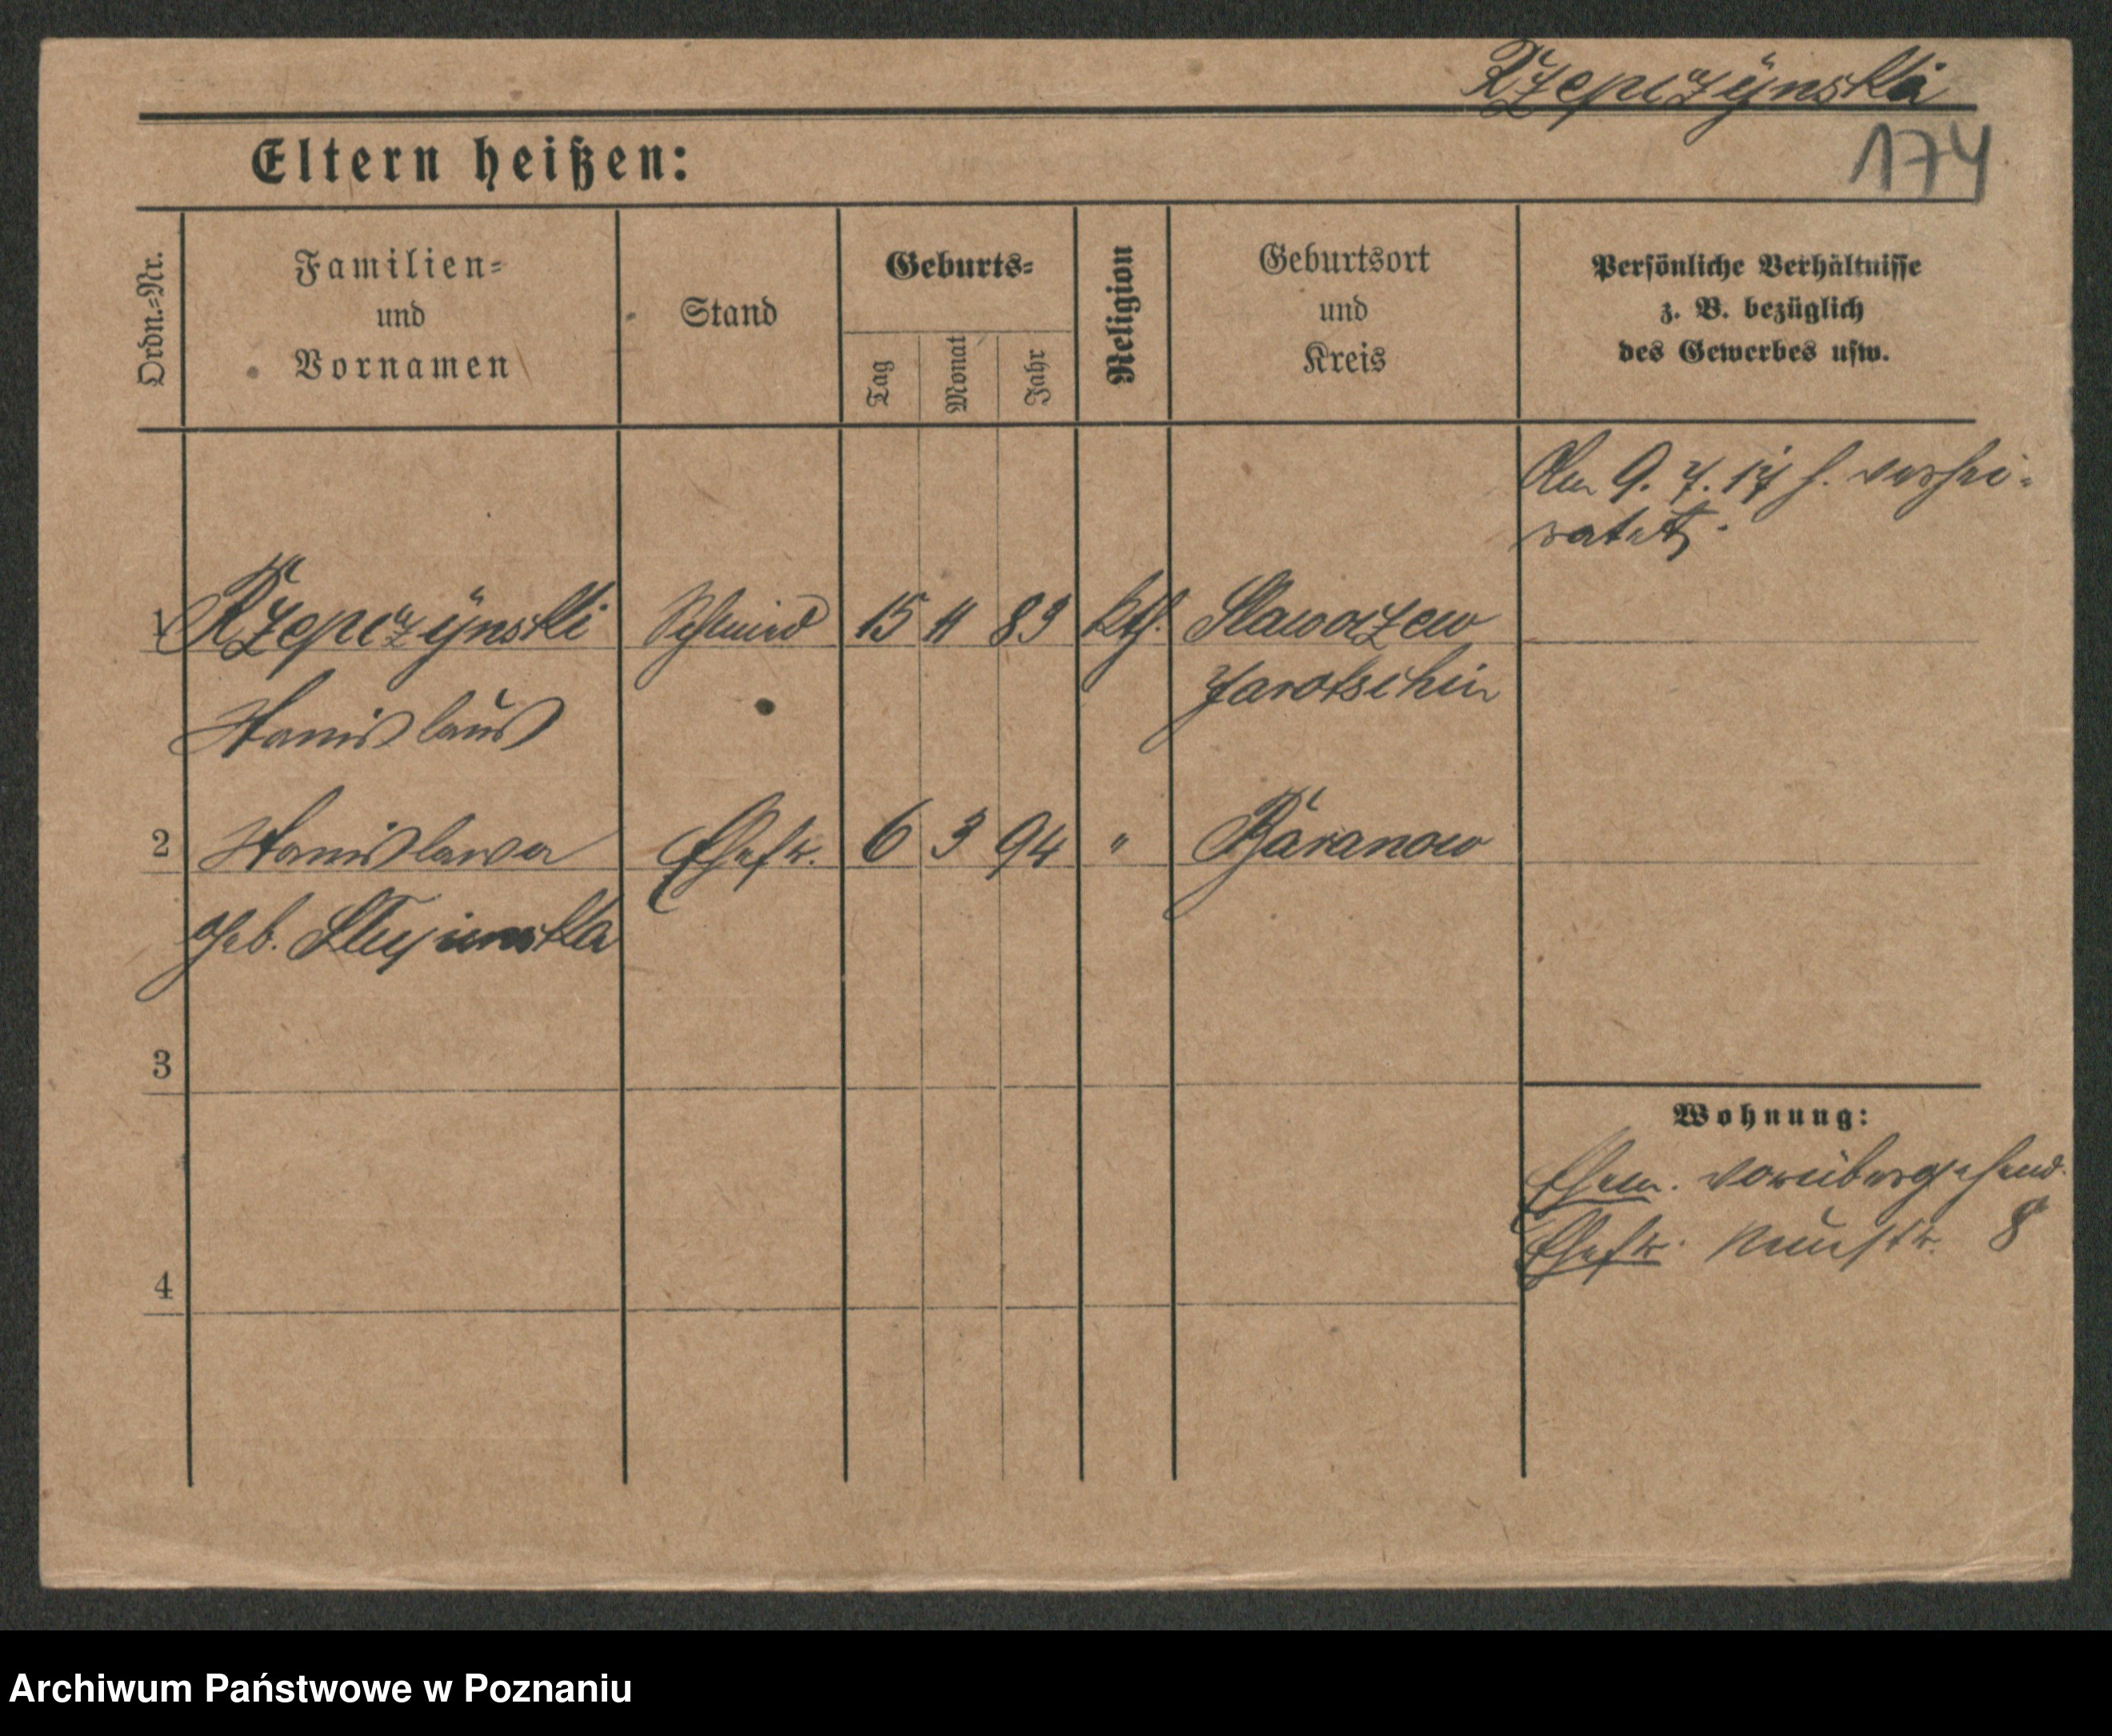 Rzepczynski
174
Eltern heißen:
Ordn.-Nr.
Familien-
und
Vornamen
Stand
Geburts-
Tag
Monat
Jahr
Religion
Geburtsort
und
Kreis
Persönliche Verhältnisse
z. B. bezüglich
des Gewerbes usw.
Am 9. 7. 17 h. verhei-
ratet.
1 Rzepczynski Schmied 15 11 89 kth. Slawoszew
Stanislaus Jarotschin
2 Stanislawa Ehefr. 6 3 94 " Baranow
geb.
3
4
Wohnung:
Ehem. vorübergehend.
Ehefr. Neustr. 8
Archiwum Państwowe w Poznaniu